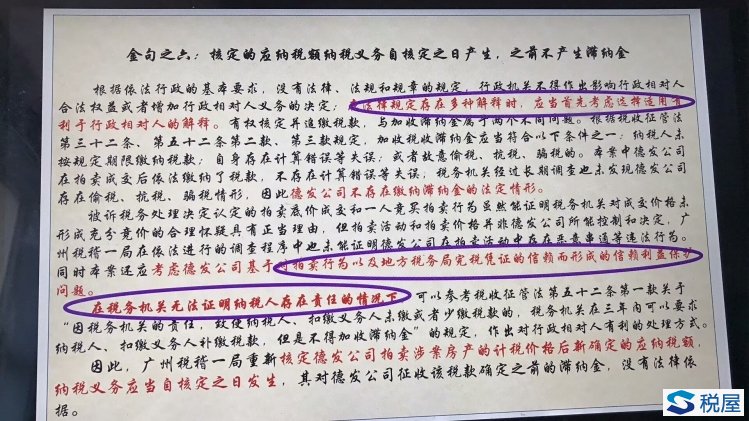 金句之六：核定的应纳税额纳税义务自核定之日产生，之前不产生滞纳金
根据依法行政的基本要求，没有法律、法规和规章的规定，行政机关不得作出影响行政相对人
合法权益或者增加行政相对人义务的决定；在法律规定存在多种解释时，应当首先考虑选择适用有
利于行政相对人的解释。有权核定并追缴税款，与加收滞纳金属于两个不同问题。根据税收征管法
第三十二条、第五十二条第二款、第三款规定，加收税收滞纳金应当符合以下条件之一：纳税人未
按规定期限缴纳税款；自身存在计算错误等失误；或者故意偷税、抗税、骗税的。本案中德发公司
在拍卖成交后依法缴纳了税款，不存在计算错误等失误，税务机关经过长期调查也未发现德发公司
存在偷税、抗税、骗税情形，因此德发公司不存在缴纳滞纳金的法定情形。
被诉税务处理决定认定的拍卖底价成交和一人竞买拍卖行为虽然能证明税务机关对成交价格未
形成充分竞价的合理怀疑具有正当理由，但拍卖活动和拍卖价格并非德发公司所能控制和决定，广
州税稽一局在依法进行的调查程序中也未能证明德发公司在拍卖活动中存在恶意串通等违法行为。
同时本案还应考虑德发公司基于对拍卖行为以及地方税务局完税凭证的信赖而形成的信赖利益保护
问题。
在税务机关无法证明纳税人存在责任的情况下，可以参考税收征管法第五十二条第一款关于
“因税务机关的责任，致使纳税人、扣缴义务人未缴或者少缴税款的，税务机关在三年内可以要求
纳税人、扣缴义务人补缴税款，但是不得加收滞纳金”的规定，作出对行政相对人有利的处理方式。
因此，广州税稽一局重新核定德发公司拍卖涉案房产的计税价格后新确定的应纳税额，
纳税义务应当自核定之日发生，其对德发公司征收该税款确定之前的滞纳金，没有法律依
据。
税屋